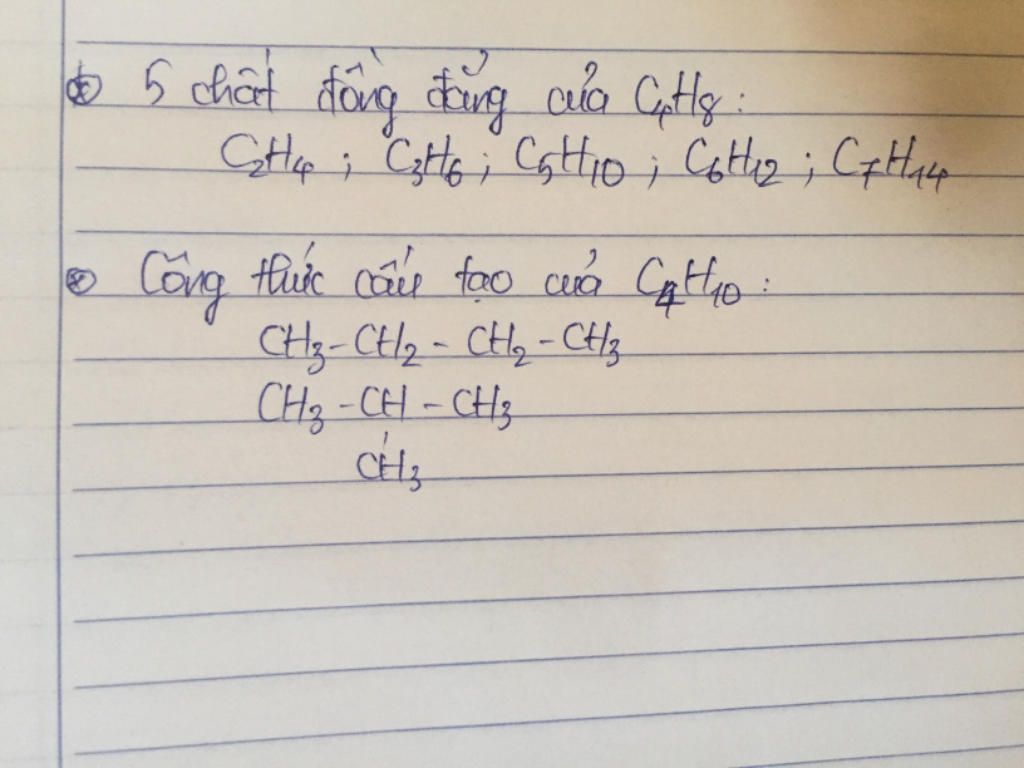 ⊛ 5 chất đồng đẳng của C₄H₈ :
C₂H₄ ; C₃H₆ ; C₅H₁₀ ; C₆H₁₂ ; C₇H₁₄
⊛ Công thức cấu tạo của C₄H₁₀ :
CH₃ - CH₂ - CH₂ - CH₃
CH₃ - CH - CH₃
CH₃